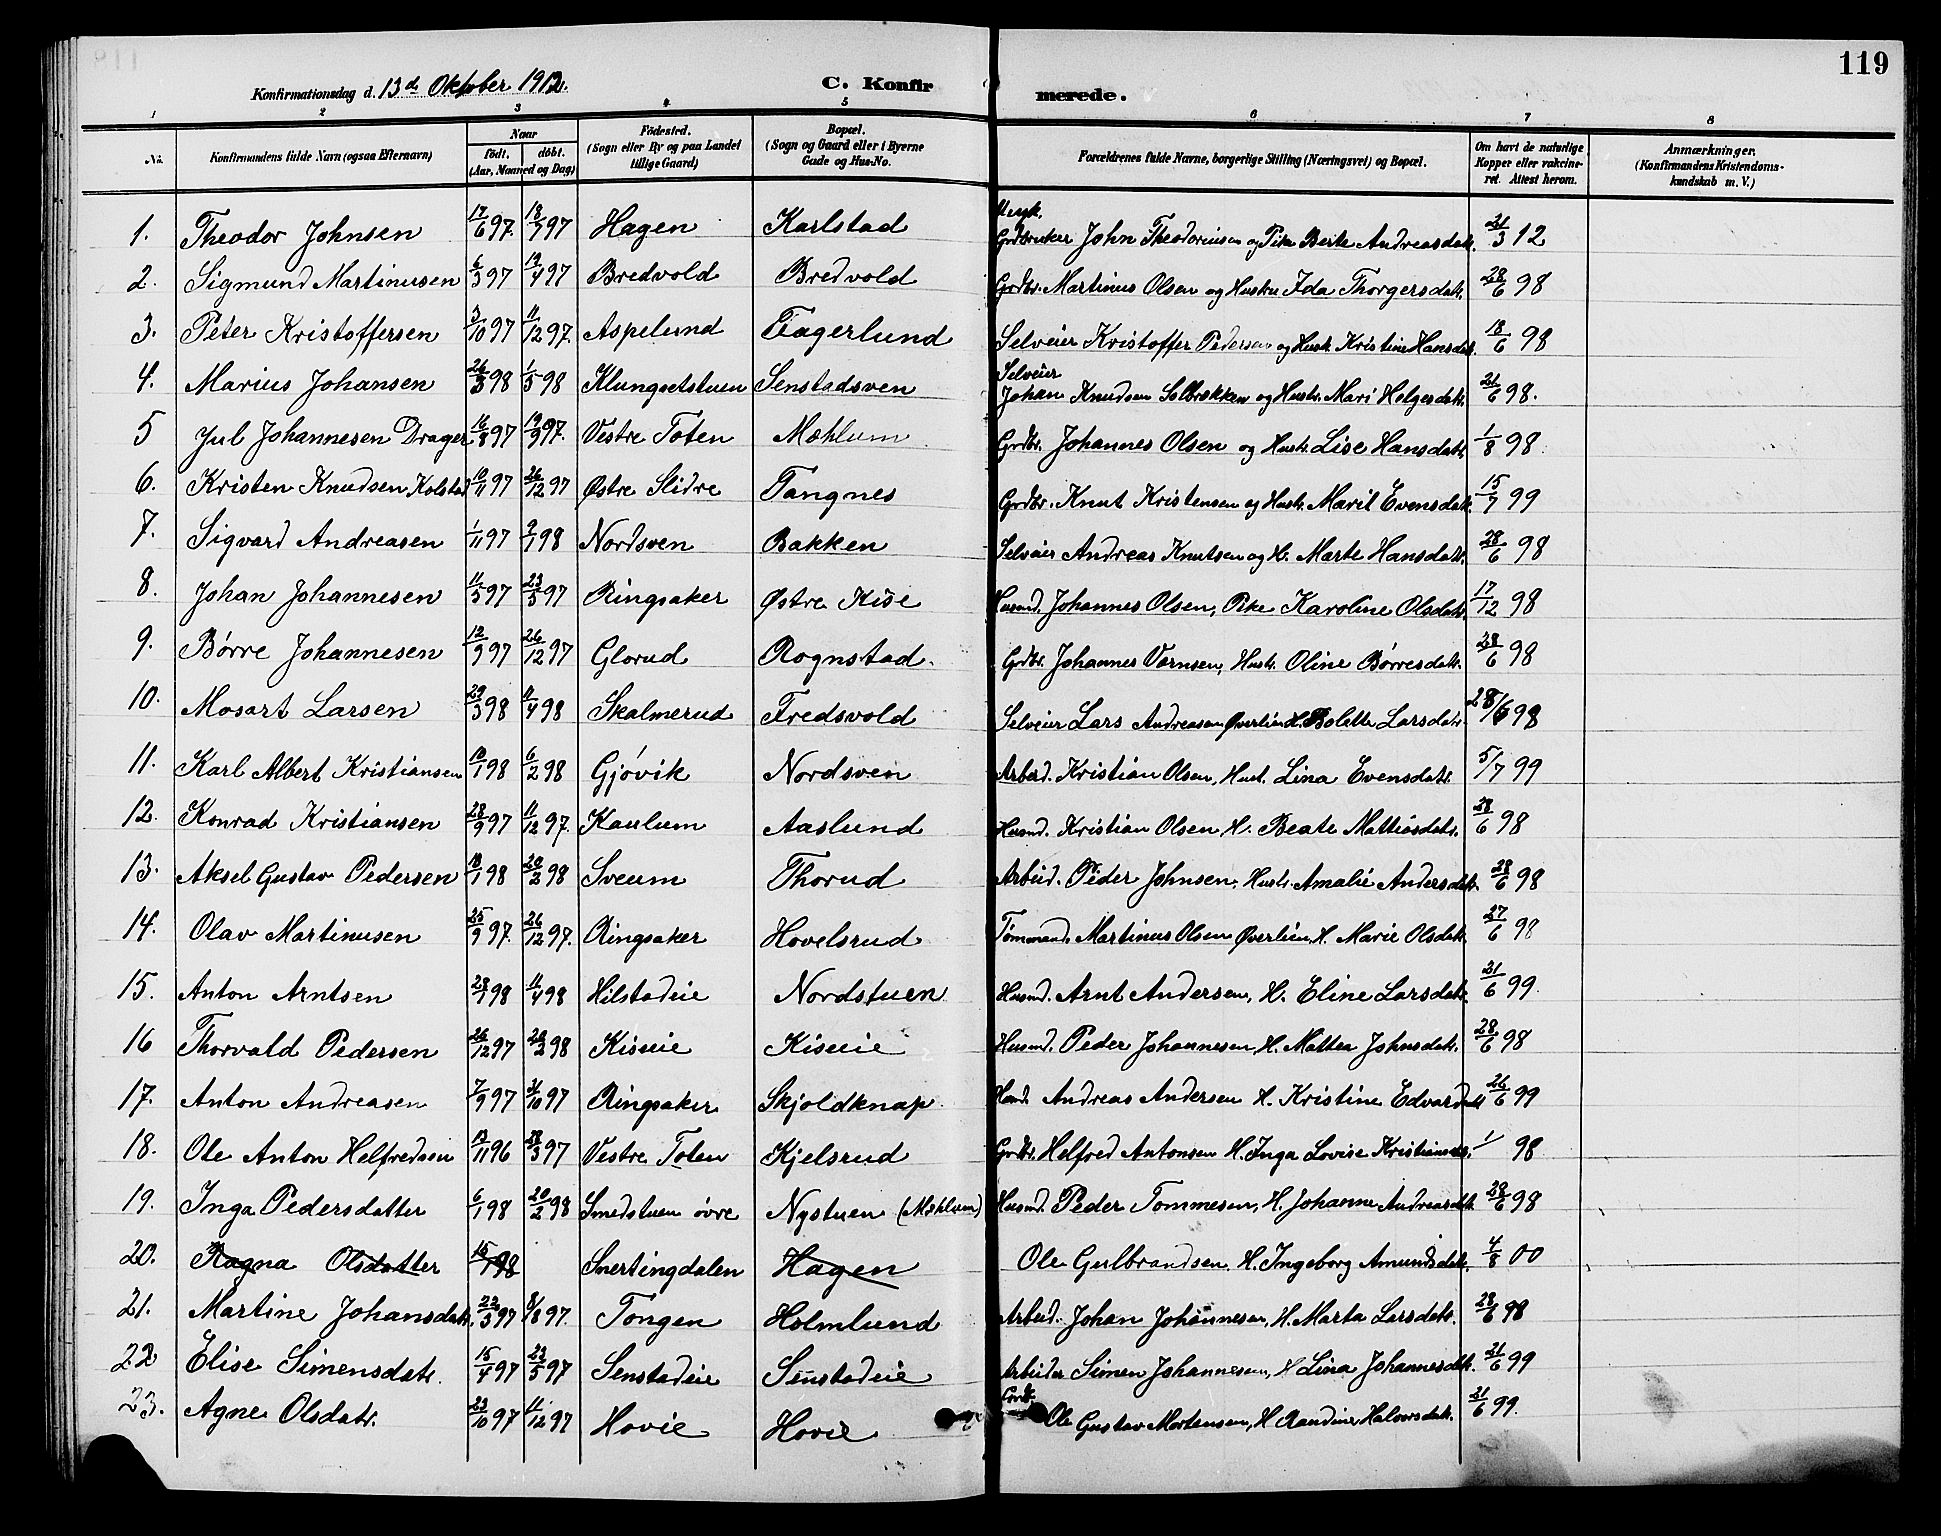 119
Konfirmationsdag d. 13de Oktober 1912. C. Konfirmerede.
1 2 3 4 5 6 7 8
No. Konfirmandens fulde Navn (ogsaa Efternavn) Naar født. døbt. (Aar, Maaned og Dag) Fødested. (Sogn eller By og paa Landet tillige Gaard) Bopæl. (Sogn og Gaard eller i Byerne Gade og Hus-No. Forældrenes fulde Navne, borgerlige Stilling (Næringsvei) og Bopæl. Om havt de naturlige Kopper eller vakcineret. Attest herom. Anmærkninger. (Konfirmandens Kristendomskundskab m. V.)
1. Theodor Johnsen 17/6 97. 18/7 97 Hagen Karlstad Grdbruker John Theodorinsen og Pike Berte Andreasdatr. 21/3 12
2. Sigmund Martinusen 6/3 97 19/4 97 Bredvold Bredvold Grdbr. Martinus Olsen og Hustru Ida Thorgersdatr. 28/6 98
3. Peter Kristoffersen 3/10 97 11/12 97. Aspelund Fagerlund Selveier Kristoffer Pedersen og Hustr. Kristine Hansdat. 18/6 98
4. Marius Johansen 26/3 98 1/5 98 Klungsetstuen Senstadsven Selveier Johan Knudsen Solbrækken og Hustr. Mari Helgesdatr. 21/6 98.
5 Jul Johannesen Drager 16/8 97 19/9 97. Vestre Toten Mæhlum Grdbr. Johannes Olsen og Hustr. Lise Hansdatr. 1/8 98
6. Kristen Knudsen Kolstad 10/11 97 26/12 97 Østre Slidre Tangnes Grdbr. Knut Kristensen og Hustr. Marit Evensdatr. 15/7 99
7. Sigvard Andreasen 1/11 97 2/1 98 Nordsven Bakken Selveier Andreas Knutsen og H. Marte Hansdatr. 28/6 98
8. Johan Johannesen 11/5 97 23/5 97 Ringsaker Østre Kise Husmd. Johannes Olsen, Pike Karoline Olsdatr. 17/12 98
9. Børre Johannesen 12/9 97 26/12 97 Glorud Rognstad. Grdbr. Johannes Vornsen, Hustr. Oline Børresdatr. 28/6 98
10. Mosart Larsen 29/3 98 11/4 98 Skalmerud Fredsvold Selveier Lars Andreasen Øverlien H. Bolette Larsdatr. 28/6 98
11. Karl Albert Kristiansen 10/1 98 6/2 98 Gjøvik Nordsven Arbeid. Kristian Olsen, Hust. Lina Evensdatr. 5/7 99
12. Konrad Kristiansen 28/9 97 11/12 97. Kaulum Aaslund Husmd. Kristian Olsen H. Beate Mattiasdatr. 28/6 98
13. Aksel Gustav Pedersen 10/1 98 20/2 98 Sveum Thorud Arbeid. Peder Johnsen, Hustr. Amalie Andersdatr. 28/6 98
14. Olav Martinusen 25/9 97. 26/12 97. Ringsaker Hovelsrud Tømmermand. Martinus Olsen Øverlien, H. Marie Olsdatr. 27/6 98
15. Anton Arntsen 28/1 98 11/4 98 Hilstadeie Nordstuen Husmd. Arnt Andersen, H. Eline Larsdatr. 21/6 99.
16 Thorvald Pedersen 26/12 97 20/2 98 Kiseie Kiseie Husmd. Peder Johannesen, H. Mattea Johnsdatr. 28/6 98
17. Anton Andreasen 7/9 97 31/10 97 Ringsaker Skjoldknap. Andreas Andersen H. Kristine Edvardsdatt 26/6 99
18. Ole Anton Helfredsen 13/11 96 28/3 97 Vestre Toten Kjelsrud Grdbr. Helfred Antonsen H. Inga Lovise Kristiansdr. 1/ 98
19. Inga Pedersdatter 6/1 98 20/2 98 Smedstuen øvre Nystuen (Mæhlum) Husmd. Peder Tommesen, H. Johanne Andreasdatr. 28/6 98
20. Ragna Olsdatter 15/1 98 Snertingdalen Hagen Ole Gulbrandsen. H. Ingeborg Amundsdatr. 4/8 00
21. Martine Johansdatr. 22/3 97 8/8 97. Tongen Holmlund Arbeid. Johan Johannesen, H. Marta Larsdatr. 28/6 98
22 Elise Simensdatr. 15/4 97 23/5 97 Senstadeie Senstadeie Arbeider Simen Johannesen, H Lina Johannesdatr. 21/6 99
23. Agne Olsdatr. 23/10 97 11/12 97 Hovie Hovie Ole Gustav Mortensen, H Randine Halvorsdatr. 21/6 99.